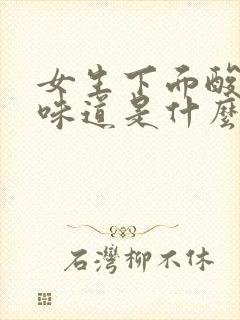 女生下而酸
味道是什麼
石灣柳不休